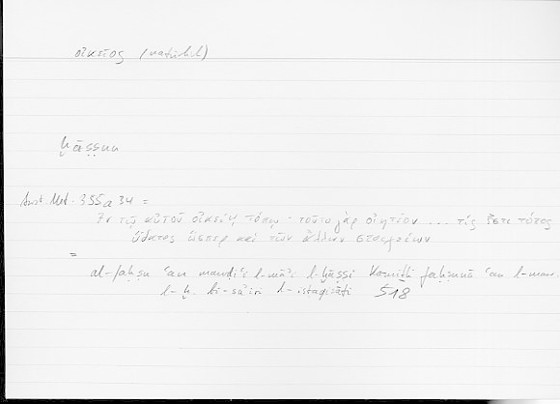 οἰκεῖος (natürlich)
ḫāṣṣun
Arist. Met. 355a 34 =
ἐν τῷ αὑτοῦ οἰκείῳ τόπῳ · τοῦτο γὰρ οἰητέον ... τίς ἐστι τόπος
ὕδατος ὥσπερ καὶ τῶν ἄλλων στοιχείων
=
al-faḥṣu ʿan mauḍiʿi l-māʾi l-ḫāṣṣi faḥṣunā ʿan l-mauḍ.
l-ḫ. bi-sāʾiri l-isṭaqisāti 518